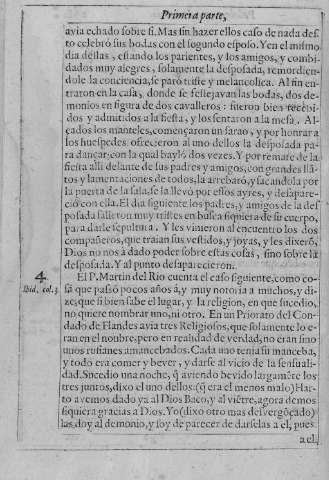 Primera parte,
avia echado sobre si. Mas sin hazer ellos caso de nada des-
to celebrò sus bodas con el segundo esposo. Y en el mismo
dia dellas, estando los parientes, y los amigos, y combi-
dados muy alegres, solamente la desposada, remordien-
dole la conciencia, se parò triste y melancolica. Al fin en-
traron en la casa, donde se festejavan las bodas, dos de-
monios en figura de dos cavalleros: fueron bien recebi-
dos y admitidos a la fiesta, y los sentaron a la mesa. Al-
çados los manteles, començaron un sarao, y por honrar a
los huespedes ofrecieron al uno dellos la desposada pa-
ra dançar: con la qual baylò dos vezes. Y por remate de la
fiesta alli delante de sus padres y amigos, con grandes llã-
tos y lamentaciones de todos, la arrebarò, y sacandola por
la puerta de la sala, se la llevò por essos ayres, y desapare-
ciò con ella. El dia siguiente los padres, y amigos de la des-
posada salieron muy tristes en busca siquiera de su cuerpo,
para darle sepultura. Y les vinieron al encuentro los dos
compañeros, que traian sus vestidos, y joyas, y les dixerõ,
Dios no nos à dado poder sobre estas cosas, sino sobre la
desposada. Y al punto desaparecieron.
4
Ibid. col. 3
El P. Martin del Rio cuenta el caso siguiente, como co-
sa que passò pocos años à, y muy notoria a muchos, y di-
ze, que si bien sabe el lugar, y la religion, en que sucedio,
no quiere nombrar uno, ni otro. En un Priorato del Con-
dado de Flandes avia tres Religiosos, que solamente lo e-
ran en el nombre, pero en realidad de verdad, no eran sino
unos rufianes amancebados. Cada uno tenia su manceba,
y todo era comer y bever, y darse al vicio de la sensuali-
dad. Sucedio una noche, q̃ aviendo bevido largamẽte los
tres juntos, dixo el uno dellos: (q̃ era el menos malo) Har-
to avemos dado ya al Dios Baco, y al viẽtre, agora demos
siquiera gracias a Dios. Yo (dixo otro mas desvergõçado)
las doy al demonio, y soy de parecer de darselas a el, pues
a el.